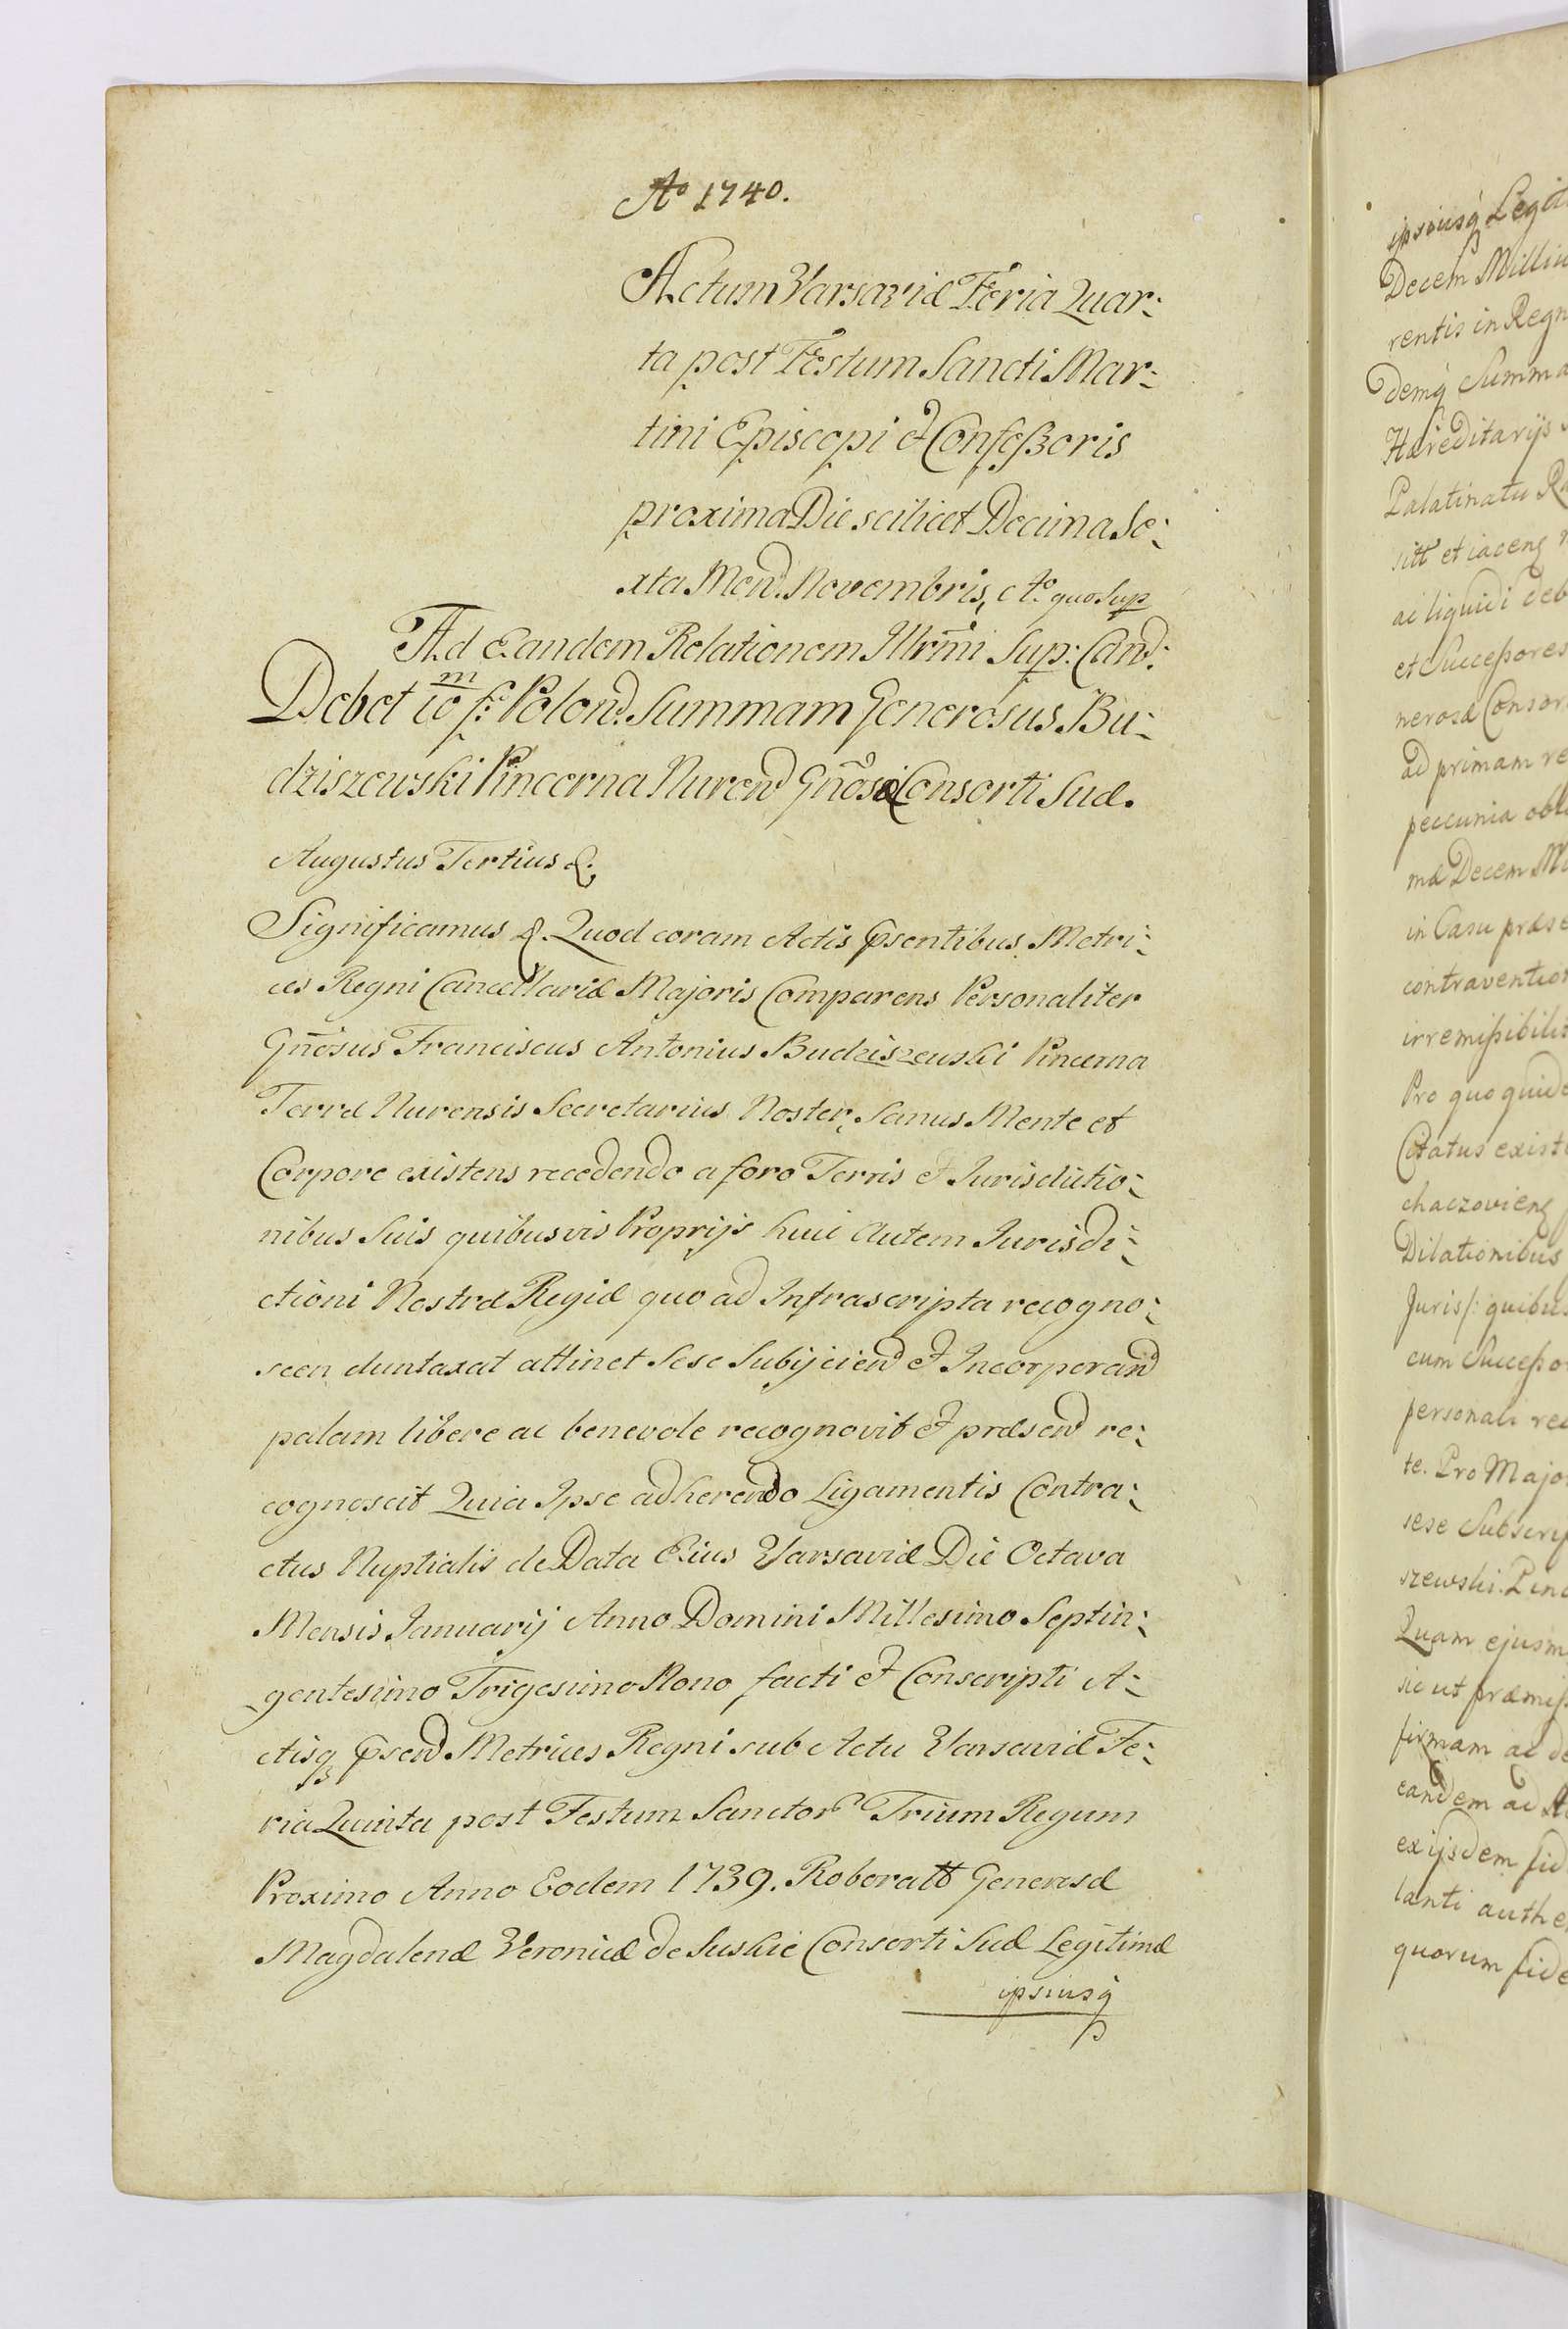 Ao 1740.
Actum Varsaviæ Feria Quar:
ta post Festum Sancti Mar:
tini Episcopi et Confeßoris
proxima Die scilicet Decima Se:
xta Mens. Novembris, Ao quo Sup
Ad Eandem Relationem Illrmi Sup: Canc:
Debet 10 m f: Polon. Summam Generosus Bu:
dziszewski Pincerna Nuren Gnosæ Consorti Suæ.
Augustus Tertius &.
Significamus &. Quod coram Actis Psentibus Metri:
ces Regni Cancellariæ Majoris Comparens Personaliter
Gnosus Franciscus Antonius Budziszewski Pincerna
Terræ Nurensis Secretarius Noster, Sanus Mente et
Corpore existens recedendo a foro Terris et Jurisdictio:
nibus Suis quibusvis Proprijs huic autem Jurisdi:
ctioni Nostræ Regiæ quo ad Infrascripta recogno:
scen duntaxat attinet Sese Subijcien et Incorporan
palam libere ac benevole recognovit et præsen re:
cognoscit Quia Ipse adherendo Ligamentis Contra:
ctus Nuptialis de Data Eius Varsaviæ Die Octava
Mensis Januarij Anno Domini Millesimo Septin:
gentesimo Trigesimo Nono facti et Conscripti A:
ctisq Psen Metrices Regni sub Actu Varsaviæ Fe:
ria Quinta post Festum Sanctor Trium Regum
Proximo Anno Eodem 1739. Roboratt Generosæ
Magdalenæ Veronicæ de Suskie Consorti Suæ Legitimæ
ipsiusq
ipsiusq Legit
Decem Milliu
rentis in Regn
demq Summa
Hæreditarijs
Palatinatu Ra
sitt et iacenq
ac liquidi deb
et Succeßores
nerosæ Consor
ad primam re
peccunia obl
mæ Decem Mi
in Casu præse
contravention
irremißibilit
Pro quo quide
Citatus existe
chaczovienq
Dilationibus
Juris/: quibus
cum Succeßo
personali rec
te. Pro Major
sese Subscrip
szewski Pinc
Quam ejusm
sic ut præmiß
firmam ac de
eandem ad A
ex ijsdem fid
lanti authe
quorum fide